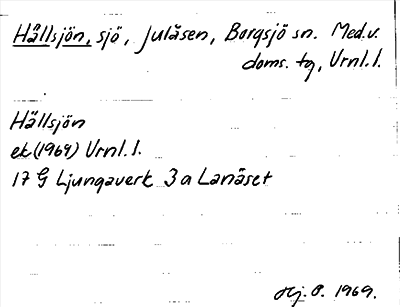 Hällsjön, sjö, Julåsen, Borgsjö sn. Med.v.
doms. tg, Vrnl. l.
Hällsjön
ek (1964) Vrnl. l.
17 G Ljungaverk 3 a Lanåset
Hj. P. 1969.